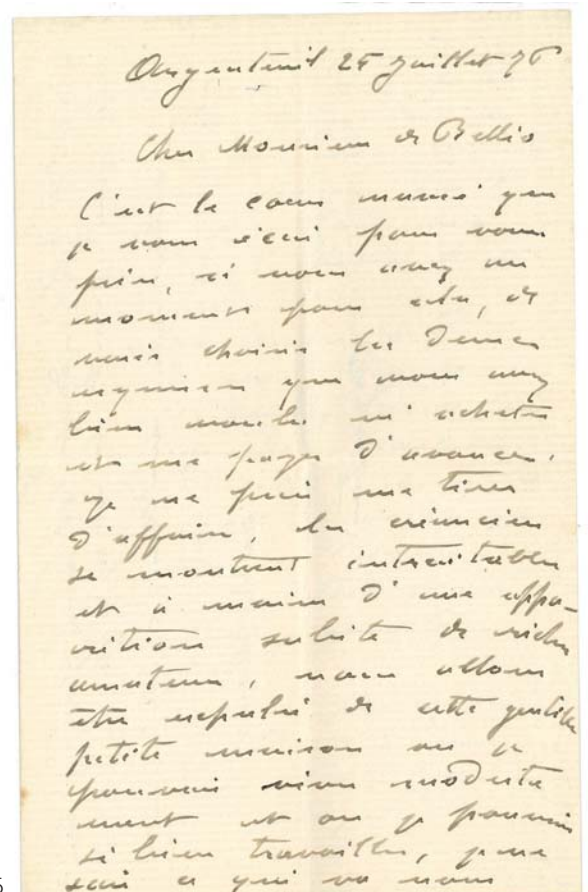 Argenteuil 25 Juillet 76
Cher Monsieur de Bellio
C'est le coeur navré que
je vous écris pour vous
prier, si vous avez un
moment pour cela, de
venir choisir les deux
que vous avez
bien voulu m'acheter
et me payer d'avance.
Je ne puis me tirer
d'affaire, les créanciers
se montrent intraitables
et à moins d'une appa-
rition subite de riches
amateurs, nous allons
être expulsés de cette gentille
petite maison où je
pouvais vivre modeste
ment et où je pouvais
si bien travailler, je ne
sais ce qui va nous